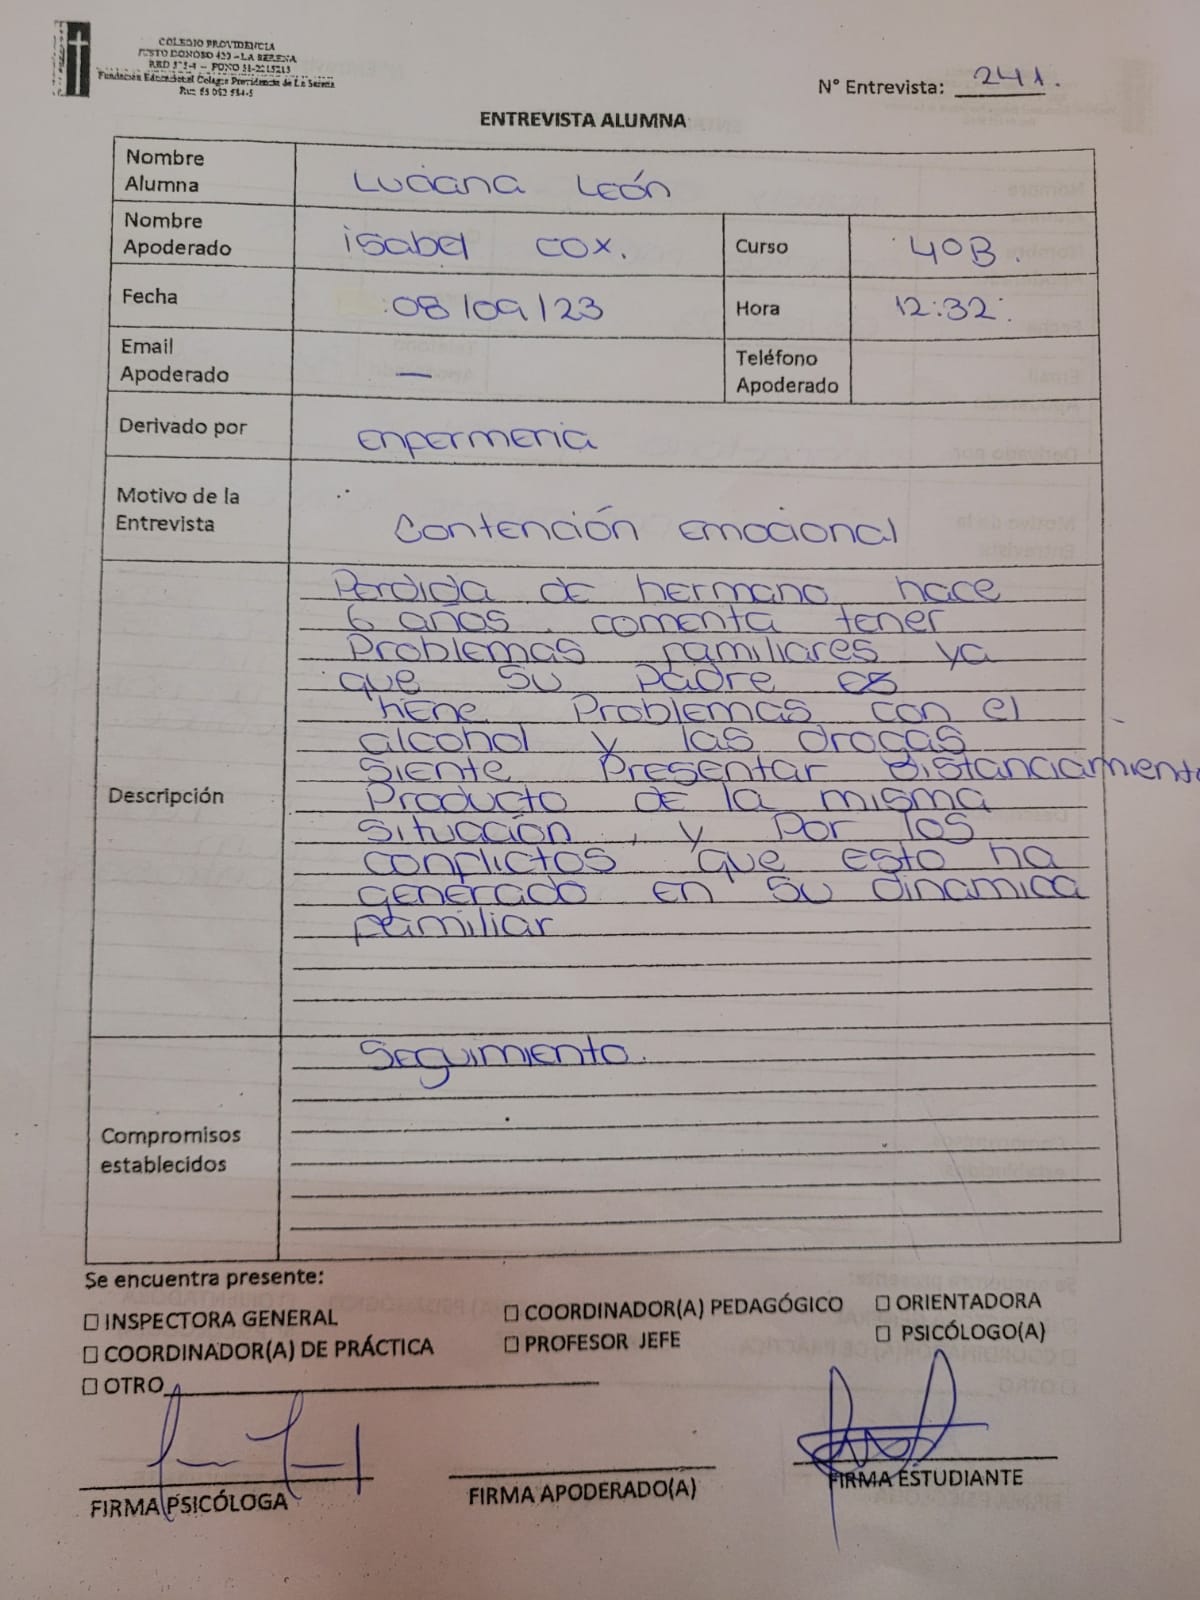 COLEGIO PROVIDENCIA
JUSTO DONOSO 420 - LA SERENA
Fundación Educacional Colegio Providencia de La Serena
N° Entrevista: 241.
ENTREVISTA ALUMNA
Nombre
Alumna
Luciana León
Nombre
Apoderado
isabel cox.
Curso
4ºB.
Fecha
08/09/23
Hora
12:32.
Email
Apoderado
—
Teléfono
Apoderado
Derivado por
enfermeria
Motivo de la
Entrevista
Contención emocional
Descripción
Perdida de hermano hace
6 años. comenta tener
Problemas familiares ya
que su Padre es
tiene Problemas con el
alcohol y las drogas
Siente Presentar distanciamiento
Producto de la misma
situación, y por los
conflictos que esto ha
generado en su dinamica
familiar
Compromisos
establecidos
Seguimiento.
Se encuentra presente:
☐ INSPECTORA GENERAL ☐ COORDINADOR(A) PEDAGÓGICO ☐ ORIENTADORA
☐ COORDINADOR(A) DE PRÁCTICA ☐ PROFESOR JEFE ☐ PSICÓLOGO(A)
☐ OTRO
FIRMA PSICÓLOGA FIRMA APODERADO(A) FIRMA ESTUDIANTE